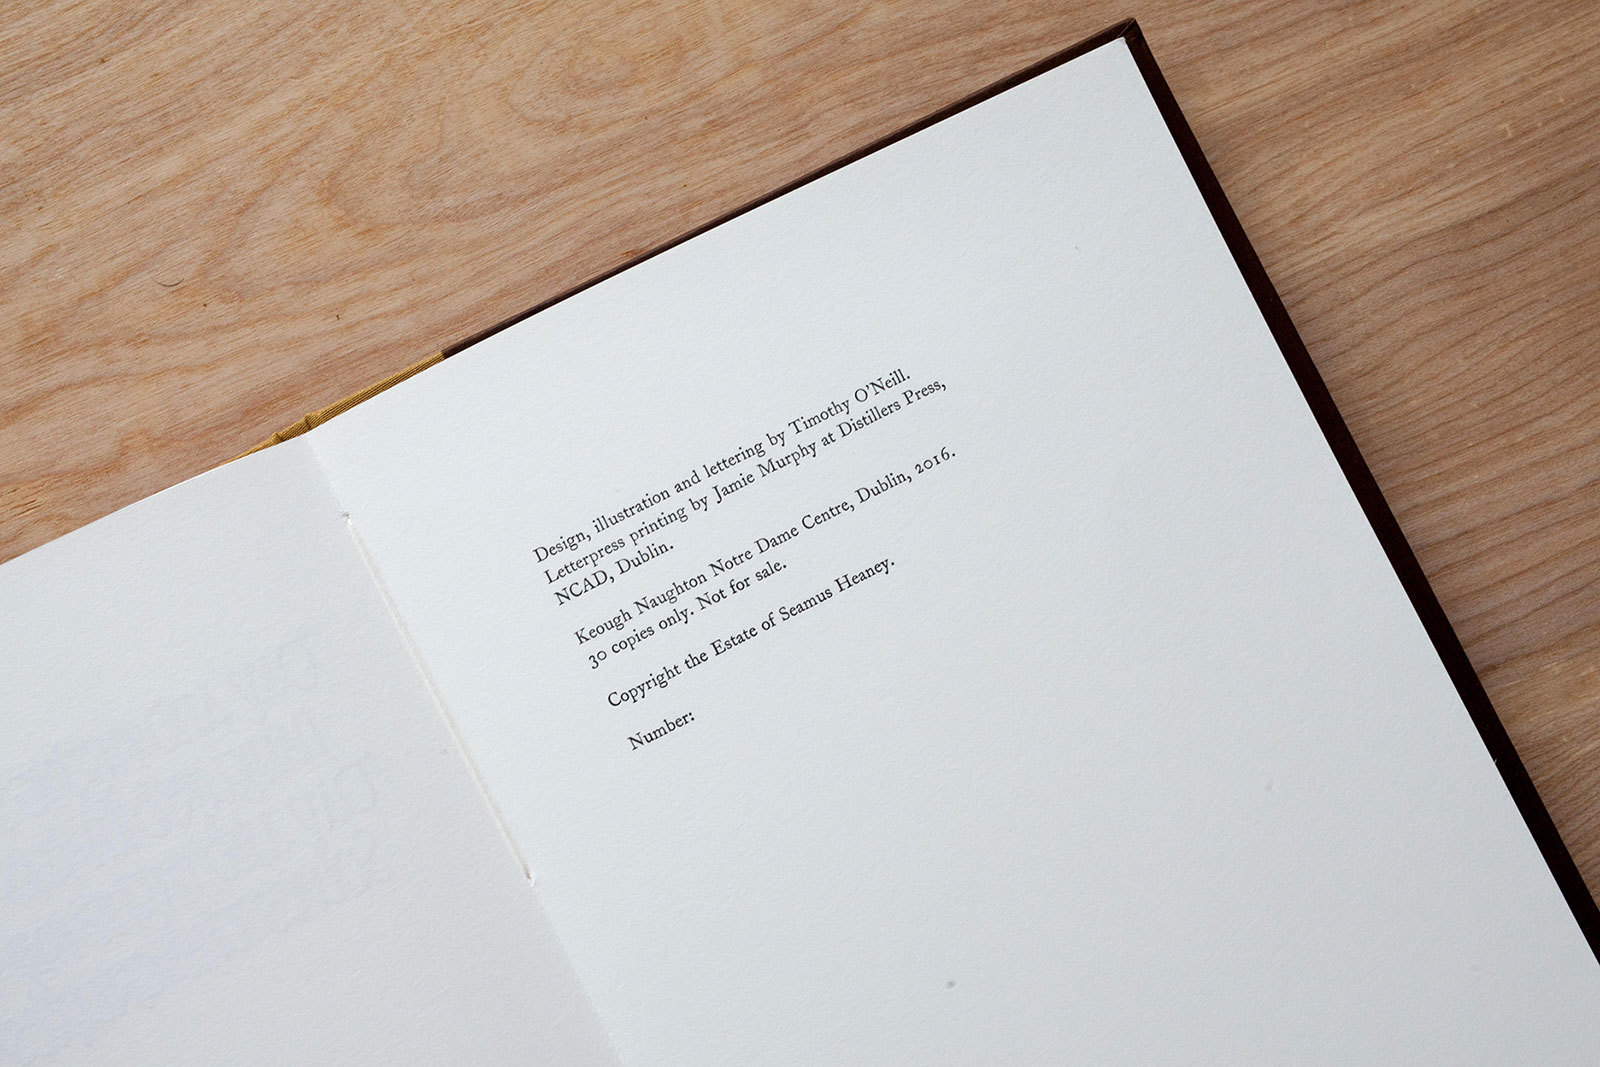 Design, illustration and lettering by Timothy O'Neill.
Letterpress printing by Jamie Murphy at Distillers Press,
NCAD, Dublin.
Keough Naughton Notre Dame Centre, Dublin, 2016.
30 copies only. Not for sale.
Copyright the Estate of Seamus Heaney.
Number: